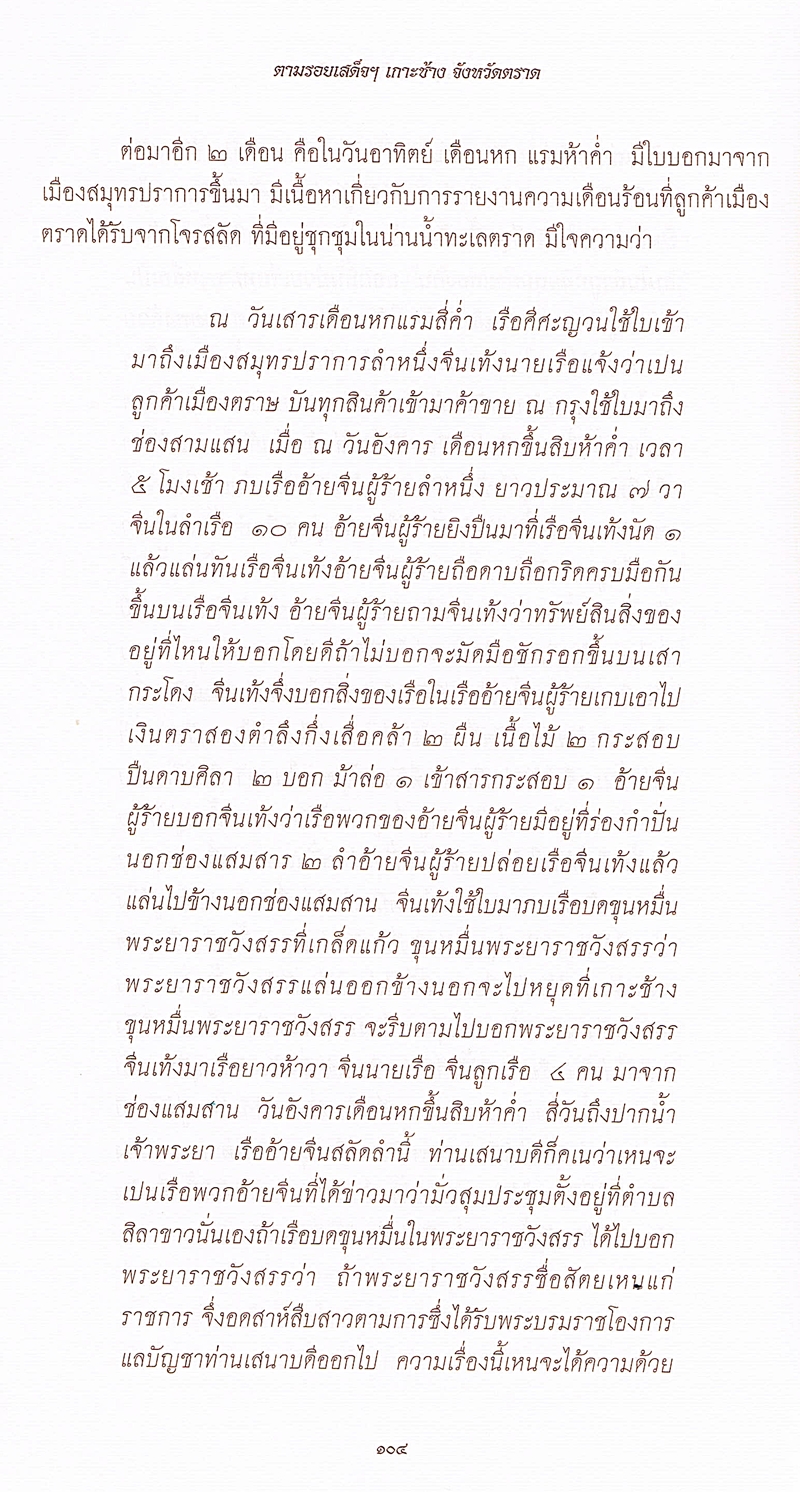 ตามรอยเสด็จฯ เกาะช้าง จังหวัดตราด
ต่อมาอีก ๒ เดือน คือในวันอาทิตย์ เดือนหก แรมห้าค่ำ มีใบบอกมาจาก
เมืองสมุทรปราการขึ้นมา มีเนื้อหาเกี่ยวกับการรายงานความเดือนร้อนที่ลูกค้าเมือง
ตราดได้รับจากโจรสลัด ที่มีอยู่ชุกชุมในน่านน้ำทะเลตราด มีใจความว่า
ณ วันเสารเดือนหกแรมสี่ค่ำ เรือศีศะญวนใช้ใบเข้า
มาถึงเมืองสมุทรปราการลำหนึ่งจีนเท้งนายเรือแจ้งว่าเปน
ลูกค้าเมืองตราษ บันทุกสินค้าเข้ามาค้าขาย ณ กรุงใช้ใบมาถึง
ช่องสามแสน เมื่อ ณ วันอังคาร เดือนหกขึ้นสิบห้าค่ำ เวลา
๕ โมงเช้า ภบเรืออ้ายจีนผู้ร้ายลำหนึ่ง ยาวประมาณ ๗ วา
จีนในลำเรือ ๑๐ คน อ้ายจีนผู้ร้ายยิงปืนมาที่เรือจีนเท้งนัด ๑
แล้วแล่นทันเรือจีนเท้งอ้ายจีนผู้ร้ายถือดาบถือกริดครบมือกัน
ขึ้นบนเรือจีนเท้ง อ้ายจีนผู้ร้ายถามจีนเท้งว่าทรัพย์สินสิ่งของ
อยู่ที่ไหนให้บอกโดยดีถ้าไม่บอกจะมัดมือชักรอกขึ้นบนเสา
กระโดง จีนเท้งจึ่งบอกสิ่งของเรือในเรืออ้ายจีนผู้ร้ายเกบเอาไป
เงินตราสองตำลึงกึ่งเสื่อคล้า ๒ ผืน เนื้อไม้ ๒ กระสอบ
ปืนดาบศิลา ๒ บอก ม้าล่อ ๑ เข้าสารกระสอบ ๑ อ้ายจีน
ผู้ร้ายบอกจีนเท้งว่าเรือพวกของอ้ายจีนผู้ร้ายมีอยู่ที่ร่องกำปั่น
นอกช่องแสมสาร ๒ ลำอ้ายจีนผู้ร้ายปล่อยเรือจีนเท้งแล้ว
แล่นไปข้างนอกช่องแสมสาน จีนเท้งใช้ใบมาภบเรือบดขุนหมื่น
พระยาราชวังสรรที่เกล็ดแก้ว ขุนหมื่นพระยาราชวังสรรว่า
พระยาราชวังสรรแล่นออกข้างนอกจะไปหยุดที่เกาะช้าง
ขุนหมื่นพระยาราชวังสรร จะรีบตามไปบอกพระยาราชวังสรร
จีนเท้งมาเรือยาวห้าวา จีนนายเรือ จีนลูกเรือ ๔ คน มาจาก
ช่องแสมสาน วันอังคารเดือนหกขึ้นสิบห้าค่ำ สี่วันถึงปากน้ำ
เจ้าพระยา เรืออ้ายจีนสลัดลำนี้ ท่านเสนาบดีก็คเนว่าเหนจะ
เปนเรือพวกอ้ายจีนที่ได้ข่าวมาว่ามั่วสุมประชุมตั้งอยู่ที่ตำบล
สิลาขาวนั่นเองถ้าเรือบดขุนหมื่นในพระยาราชวังสรร ได้ไปบอก
พระยาราชวังสรรว่า ถ้าพระยาราชวังสรรซื่อสัตยเหนแก่
ราชการ จึ่งอดสาห์สืบสาวตามการซึ่งได้รับพระบรมราชโองการ
แลบัญชาท่านเสนาบดีออกไป ความเรื่องนี้เหนจะได้ความด้วย
๑๐๔